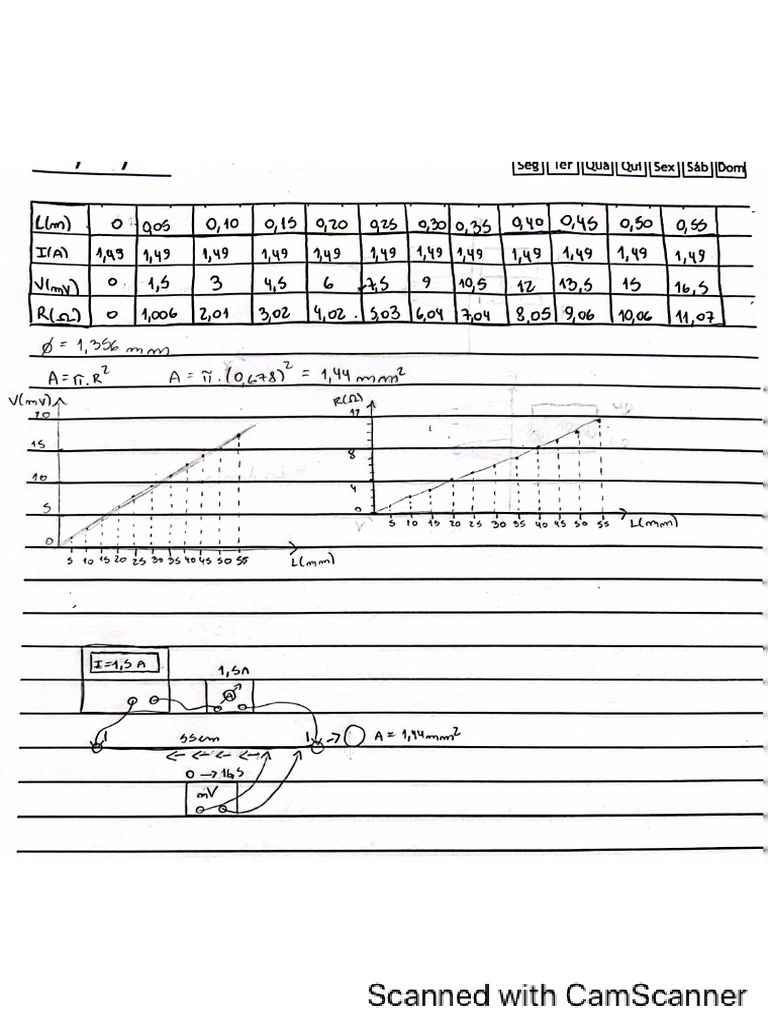 Seg Ter Qua Qui Sex Sáb Dom
L(m) 0 0,05 0,10 0,15 0,20 0,25 0,30 0,35 0,40 0,45 0,50 0,55
I(A) 1,49 1,49 1,49 1,49 1,49 1,49 1,49 1,49 1,49 1,49 1,49 1,49
V(mV) 0 1,5 3 4,5 6 7,5 9 10,5 12 13,5 15 16,5
R(Ω) 0 1,006 2,01 3,02 4,02 5,03 6,04 7,04 8,05 9,06 10,06 11,07
φ = 1,356 mm
A = π.R² A = π.(0,678)² = 1,44 mm²
V(mV)
20
15
10
5
0
5 10 15 20 25 30 35 40 45 50 55
L(mm)
R(Ω)
12
8
4
0
5 10 15 20 25 30 35 40 45 50 55
L(mm)
I=1,5 A
1,5A
A
55cm
A = 1,44mm²
0 → 16,5
mV
Scanned with CamScanner